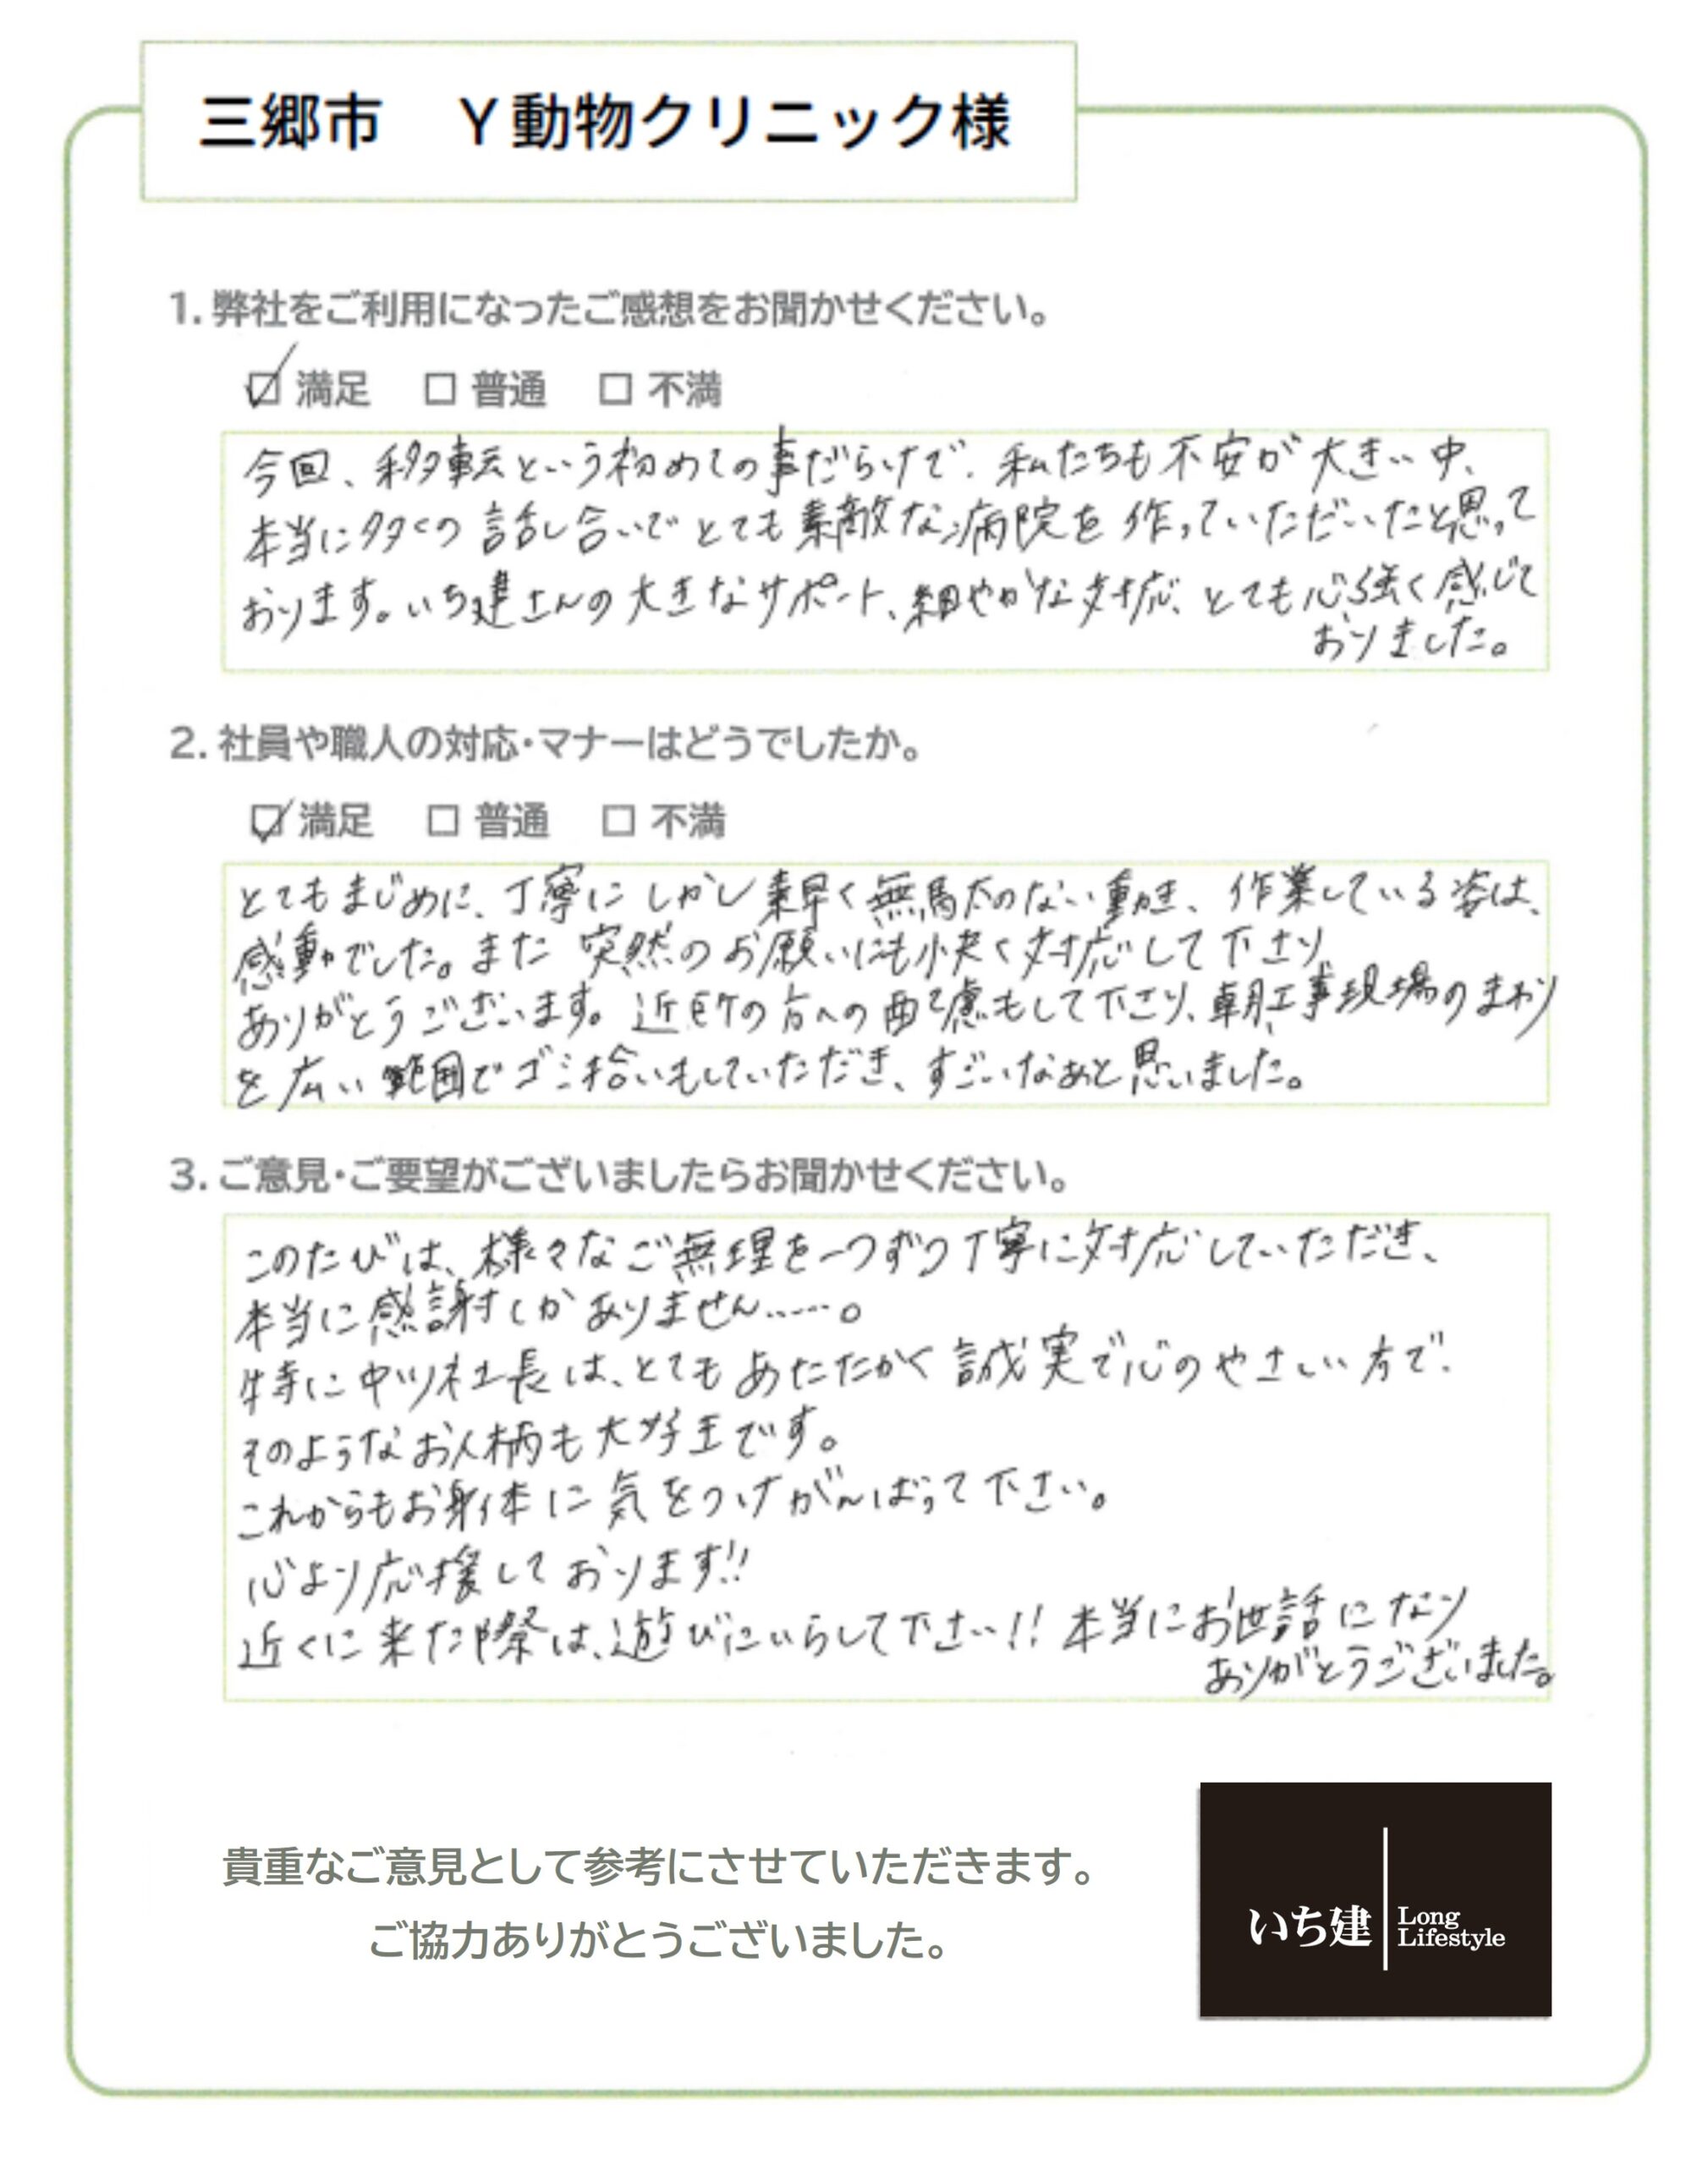 三郷市　Y動物クリニック様
1. 弊社をご利用になったご感想をお聞かせください。
☑ 満足　□ 普通　□ 不満
今回、移転という初めての事だらけで、私たちも不安が大きい中、
本当に多くの話し合いでとても素敵な病院を作っていただいたと思って
おります。いち建さんの大きなサポート、細やかな対応、とても心強く感じて
おりました。
2. 社員や職人の対応・マナーはどうでしたか。
☑ 満足　□ 普通　□ 不満
とてもまじめに、丁寧にしかし素早く無駄のない動き、作業している姿は、
感動でした。また突然のお願いにも快く対応して下さり、
ありがとうございます。近所の方への配慮もして下さり、朝、工事現場のまわり
を広い範囲でゴミ拾いもしていただき、すごいなあと思いました。
3. ご意見・ご要望がございましたらお聞かせください。
このたびは、様々なご無理を一つずつ丁寧に対応していただき、
本当に感謝しかありません……。
特に中ツ社長は、とてもあたたかく誠実で心のやさしい方で、
そのようなお人柄も大好きです。
これからもお身体に気をつけがんばって下さい。
心より応援しております!!
近くに来た際は、遊びにいらして下さい!! 本当にお世話になり
ありがとうございました。
貴重なご意見として参考にさせていただきます。
ご協力ありがとうございました。
いち建 Long
Lifestyle